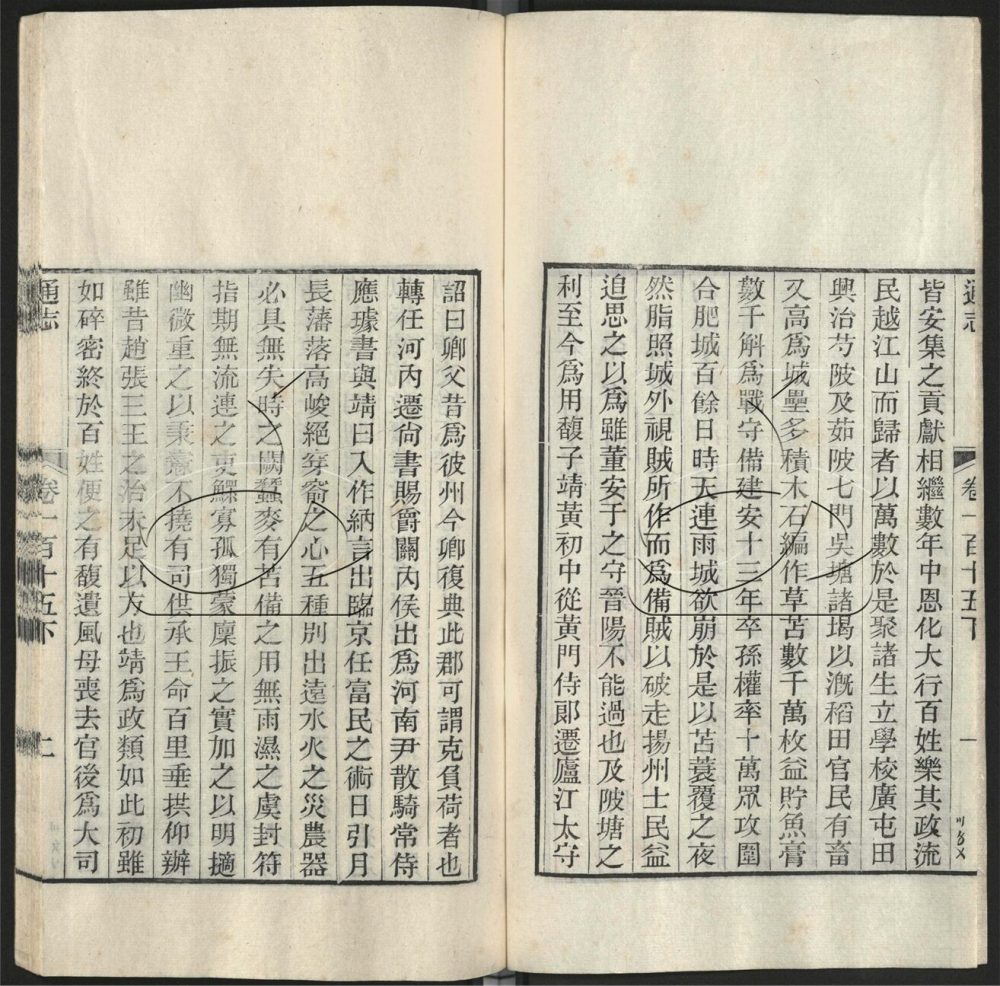 通志
卷一百十五下
一
皆安集之貢獻相繼數年中恩化大行百姓樂其政流
民越江山而歸者以萬數於是聚諸生立學校廣屯田
興治芍陂及茹陂七門吳塘諸堨以漑稻田官民有畜
又高爲城壘多積木石編作草苫數千萬枚益貯魚膏
數千斛爲戰守備建安十三年卒孫權率十萬眾攻圍
合肥城百餘日時天連雨城欲崩於是以苫蓑覆之夜
然脂照城外視賊所作而爲備賊以破走揚州士民益
追思之以爲雖董安于之守晉陽不能過也及陂塘之
利至今爲用馥子靖黃初中從黃門侍郞遷廬江太守
詔曰卿父昔爲彼州今卿復典此郡可謂克負荷者也
轉任河內遷尙書賜爵關內侯出爲河南尹散騎常侍
應璩書與靖曰入作納言出臨京任富民之術日引月
長藩落高峻絕穿窬之心五種別出遠水火之災農器
必具無失時之闕蠶麥有苫備之用無雨濕之虞封符
指期無流連之吏鰥寡孤獨蒙廩振之實加之以明擿
幽微重之以秉憲不撓有司供承王命百里垂拱仰辦
雖昔趙張三王之治未足以方也靖爲政類如此初雖
如碎密終於百姓便之有馥遺風母喪去官後爲大司
通志
卷一百十五下